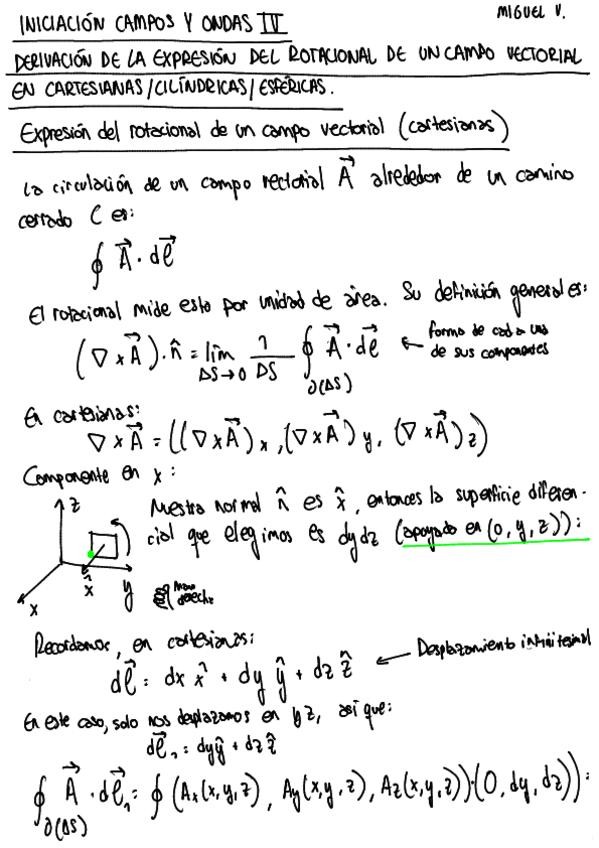 MIGUEL V.
INICIACIÓN CAMPOS Y ONDAS IV
DERIVACIÓN DE LA EXPRESIÓN DEL ROTACIONAL DE UN CAMPO VECTORIAL
EN CARTESIANAS/CILÍNDRICAS/ESFÉRICAS.
Expresión del rotacional de un campo vectorial (cartesianas)
La circulación de un campo vectorial A⃗ alrededor de un camino
cerrado C es:
∮ A⃗ · dℓ⃗
El rotacional mide esto por unidad de área. Su definición general es:
(∇ × A⃗) · n̂ = lim_{ΔS→0} 1/ΔS ∮_{∂(ΔS)} A⃗ · dℓ⃗ ← forma de cada una
de sus componentes
En cartesianas:
∇ × A⃗ = ((∇ × A⃗)x, (∇ × A⃗)y, (∇ × A⃗)z)
Componente en x:
z
Nuestra normal n̂ es x̂, entonces la superficie diferen-
cial que elegimos es dydz (apoyado en (0, y, z)):
x̂
x
y
mano
derecha
Recordamos, en cartesianas:
dℓ⃗ = dx x̂ + dy ŷ + dz ẑ ← Desplazamiento infinitesimal
En este caso, solo nos desplazamos en yz, así que:
dℓ⃗₁ = dyŷ + dzẑ
∮_{∂(ΔS)} A⃗ · dℓ⃗₁ = ∮ (Ax(x,y,z), Ay(x,y,z), Az(x,y,z))·(0, dy, dz)) =